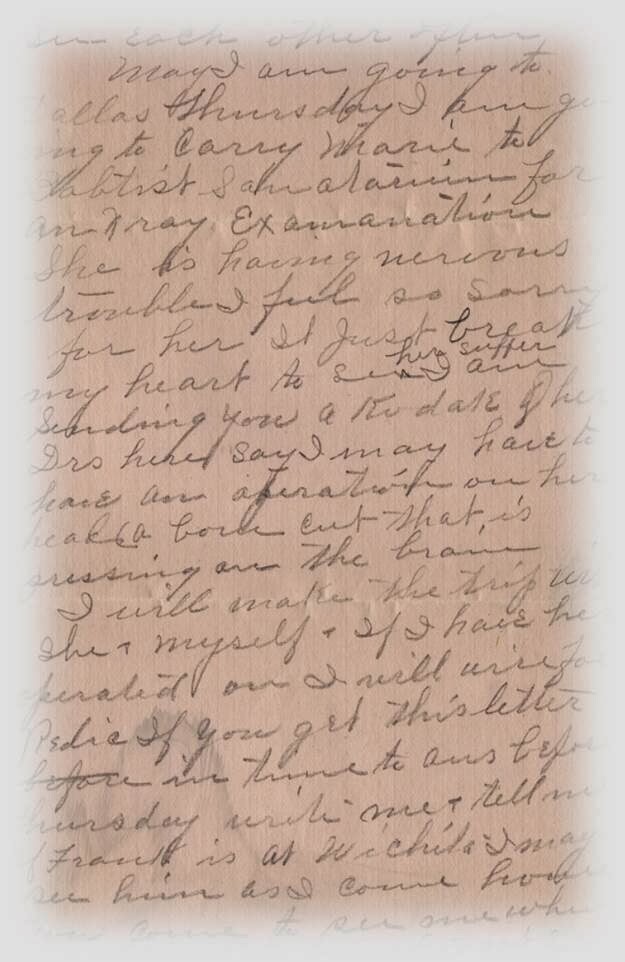 each other often
May I am going to
Dallas Thursday I am go
ing to Carry Marie to
Babtist Sanatarium for
an Xray Examanation
She is having nervous
trouble I feel so sorry
for her It Just break
my heart to see her suffer I am
Sending you a Kodak of her
Drs here say I may have to
have an operation on her
head (a bone cut that is
pressing on the brain
I will make the trip
She + myself + If I have her
operated on I will wire for
Redic If you get this letter
before in time to ans before
Thursday write me + tell me
if Frank is at Wichita I may
see him as I come home
come to see me when